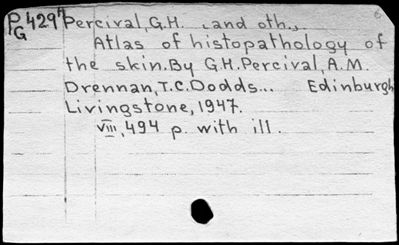 P/G 4297 Percival, G.H. and oth.,
Atlas of histopathology of
the skin. By G.H. Percival, A.M.
Drennan, T.C. Dodds... Edinburgh
Livingstone, 1947.
VIII, 494 p. with ill.